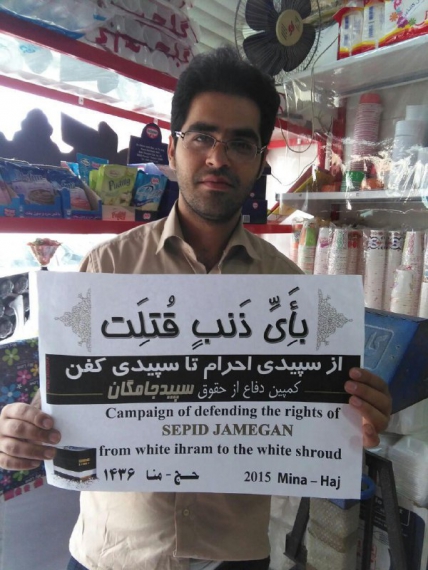 بِأَيِّ ذَنبٍ قُتِلَت
از سپیدی احرام تا سپیدی کفن
کمپین دفاع از حقوق سپیدجامگان
Campaign of defending the rights of
SEPID JAMEGAN
from white ihram to the white shroud
حـج - منـا ۱۴۳۶
2015 Mina – Haj